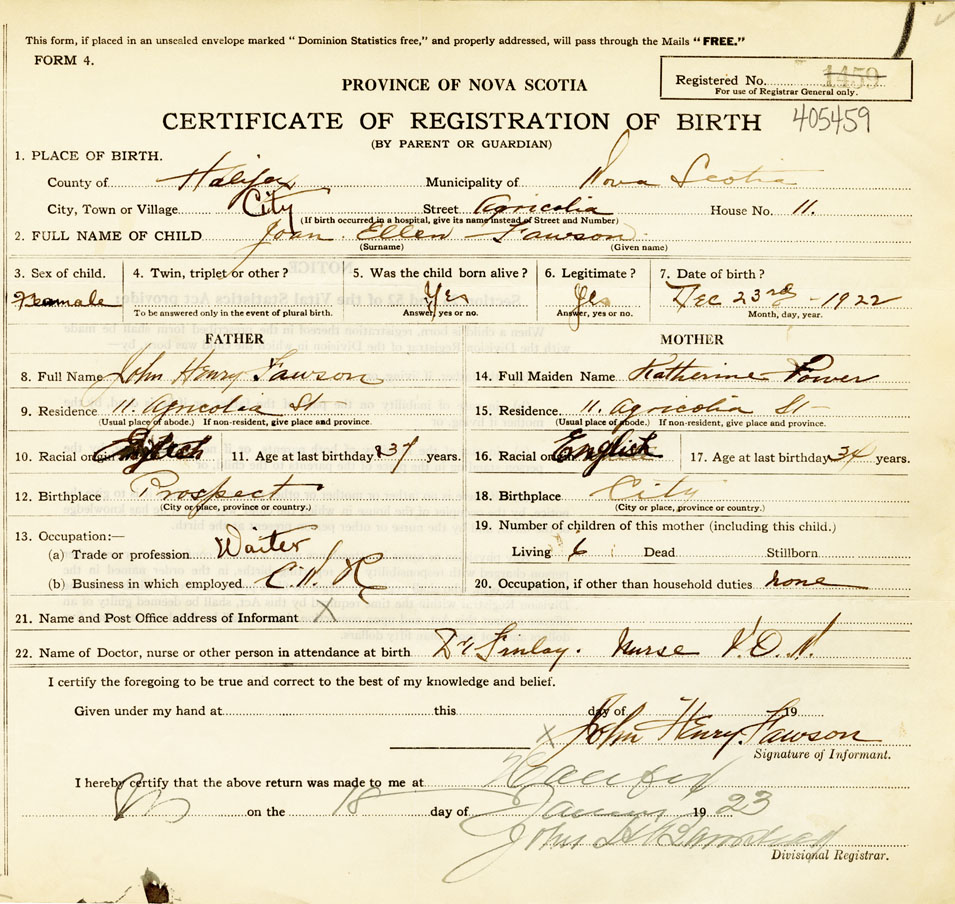 This form, if placed in an unsealed envelope marked "Dominion Statistics free," and properly addressed, will pass through the Mails "FREE."
FORM 4.
Registered No. 1459
For use of Registrar General only.
PROVINCE OF NOVA SCOTIA
CERTIFICATE OF REGISTRATION OF BIRTH 405459
(BY PARENT OR GUARDIAN)
1. PLACE OF BIRTH.
County of Halifax Municipality of Nova Scotia
City, Town or Village City Street Agricolia House No. 11.
(If birth occurred in a hospital, give its name instead of Street and Number)
2. FULL NAME OF CHILD Joan Ellen Fawson
(Surname) (Given name)
3. Sex of child. 4. Twin, triplet or other? 5. Was the child born alive? 6. Legitimate? 7. Date of birth?
Feamale Yes Yes Dec 23rd - 1922
To be answered only in the event of plural birth. Answer, yes or no. Answer, yes or no. Month, day, year.
FATHER MOTHER
8. Full Name John Henry Fawson 14. Full Maiden Name Katherine Power
9. Residence 11. Agricolea St 15. Residence 11. Agricolia St
(Usual place of abode.) If non-resident, give place and province. (Usual place of abode.) If non-resident, give place and province.
10. Racial origin 11. Age at last birthday 37 years. 16. Racial origin English 17. Age at last birthday 34 years.
12. Birthplace Prospect 18. Birthplace City
(City or place, province or country.) (City or place, province or country.)
13. Occupation:— 19. Number of children of this mother (including this child.)
(a) Trade or profession Waiter Living 6 Dead Stillborn
(b) Business in which employed C.N.R 20. Occupation, if other than household duties none
21. Name and Post Office address of Informant X
22. Name of Doctor, nurse or other person in attendance at birth Dr Finlay. Nurse V.O.N.
I certify the foregoing to be true and correct to the best of my knowledge and belief.
Given under my hand at this day of 19
X John Henry Fawson
Signature of Informant.
I hereby certify that the above return was made to me at Halifax
on the 18 day of 1923
John
Divisional Registrar.